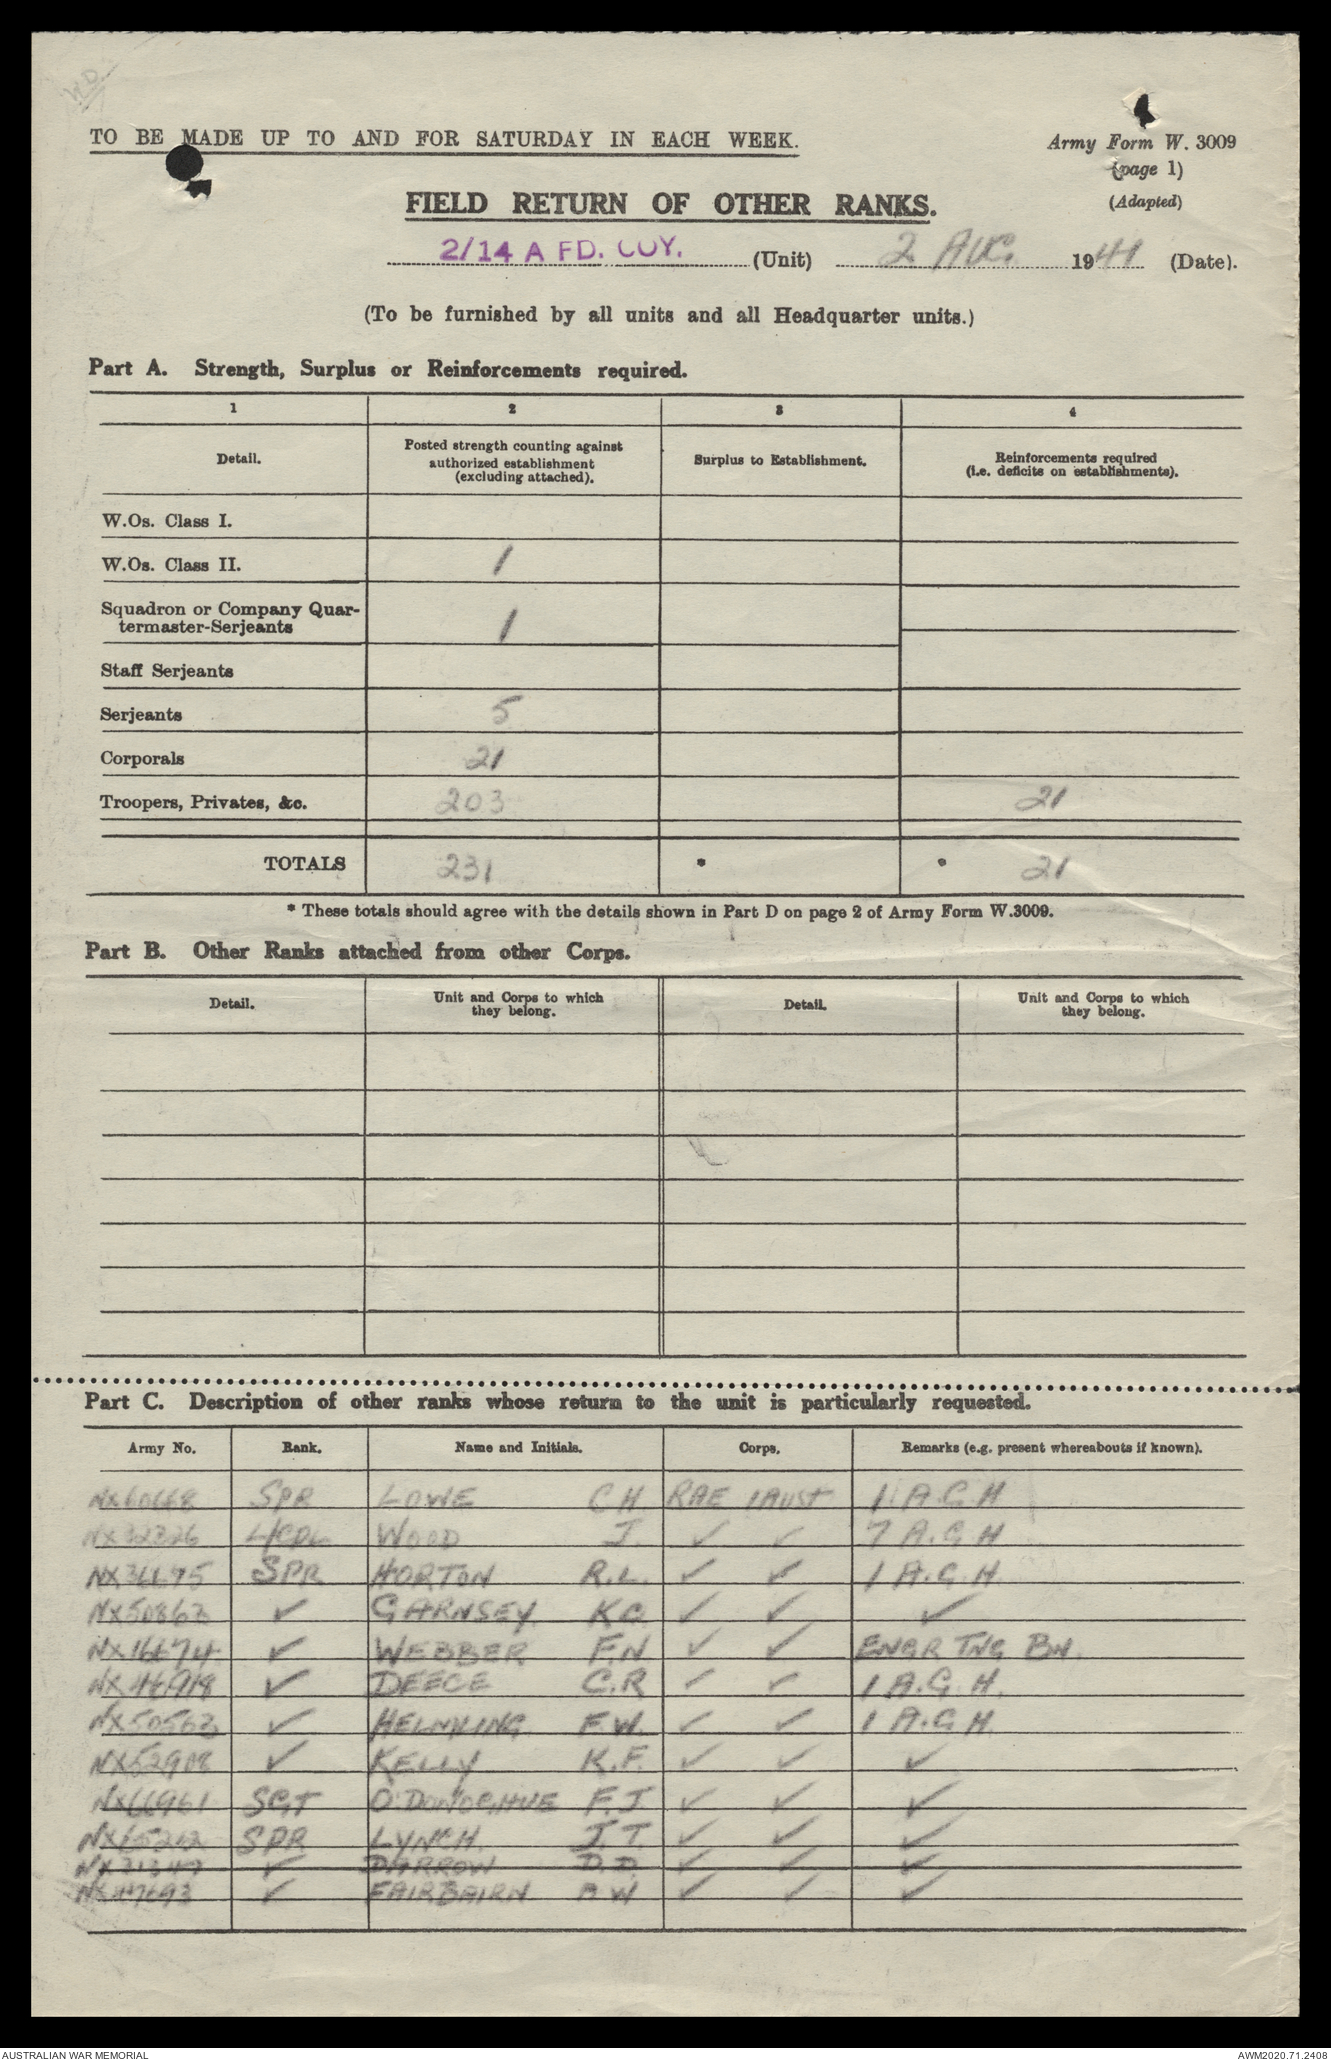 W.D.
TO BE MADE UP TO AND FOR SATURDAY IN EACH WEEK.
Army Form W. 3009
(page 1)
(Adapted)
FIELD RETURN OF OTHER RANKS.
2/14 A FD. COY. (Unit) 2 AUG. 1941 (Date).
(To be furnished by all units and all Headquarter units.)
Part A. Strength, Surplus or Reinforcements required.
1 2 3 4
Detail. Posted strength counting against authorized establishment (excluding attached). Surplus to Establishment. Reinforcements required (i.e. deficits on establishments).
W.Os. Class I.
W.Os. Class II. 1
Squadron or Company Quar-
termaster-Serjeants 1
Staff Serjeants
Serjeants 5
Corporals 21
Troopers, Privates, &c. 203 21
TOTALS 231 * * 21
* These totals should agree with the details shown in Part D on page 2 of Army Form W.3009.
Part B. Other Ranks attached from other Corps.
Detail. Unit and Corps to which they belong. Detail. Unit and Corps to which they belong.
Part C. Description of other ranks whose return to the unit is particularly requested.
Army No. Rank. Name and Initials. Corps. Remarks (e.g. present whereabouts if known).
SPR LOWE C.H. RAE 1 AUST 1 A.G.H
NX32326 L/CPL WOOD J. ✓ ✓ 7 A.G.H
SPR HORTON R.L. ✓ ✓ 1 A.G.H.
NX50863 ✓ GARNSEY ✓ ✓ ✓
NX16674 ✓ WEBBER F.N ✓ ✓ ENGR TNG BN.
✓ DEECE C.R ✓ ✓ 1 A.G.H.
NX50563 ✓ F.W. ✓ ✓ 1 A.G.H.
NX52908 ✓ KELLY K.F. ✓ ✓ ✓
NX66961 SGT O'DONOGHUE F.J ✓ ✓ ✓
SPR LYNCH. J.T. ✓ ✓ ✓
✓ DARROW D.D. ✓ ✓ ✓
NX47693 ✓ FAIRBAIRN ✓ ✓ ✓
AUSTRALIAN WAR MEMORIAL
AWM2020.71.2408